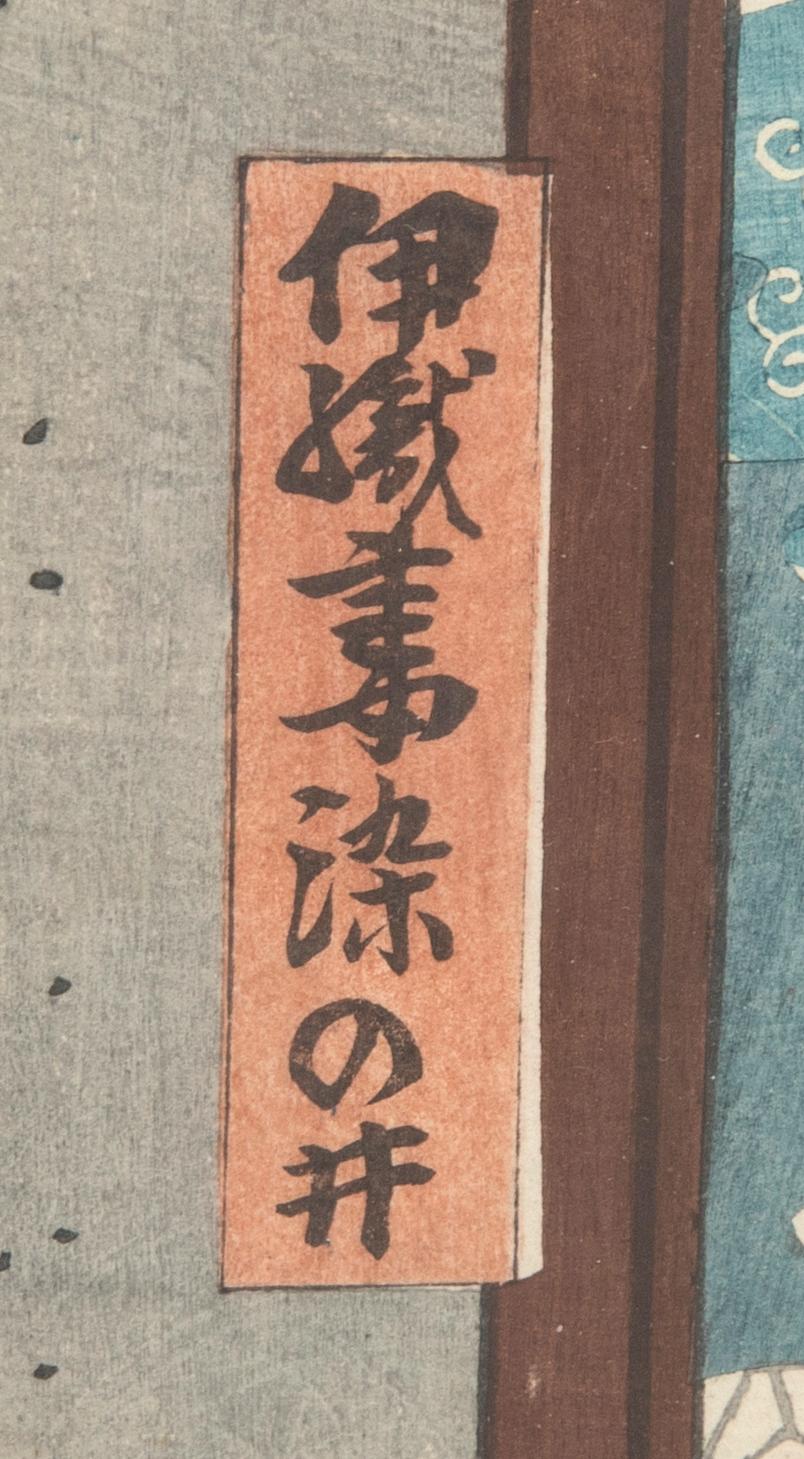 伊織妻染の井